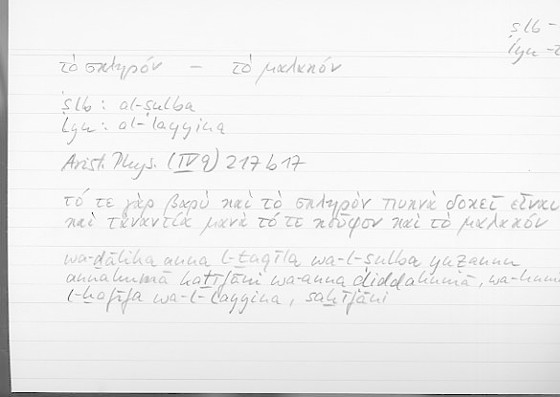 ṣlb -
lyn -
τὸ σκληρόν — τὸ μαλακόν
ṣlb: al-ṣulba
lyn: al-layyina
Arist. Phys. (IV 9) 217 b 17
τό τε γὰρ βαρὺ καὶ τὸ σκληρὸν πυκνὰ δοκεῖ εἶναι
καὶ τἀναντία μανὰ τό τε κοῦφον καὶ τὸ μαλακόν
wa-ḏālika anna l-ṯaqīla wa-l-ṣulba yuẓannu
annahumā kaṯīfāni wa-anna ḍiddahumā, wa-humā
l-ḫafīfa wa-l-layyina, saḫīfāni